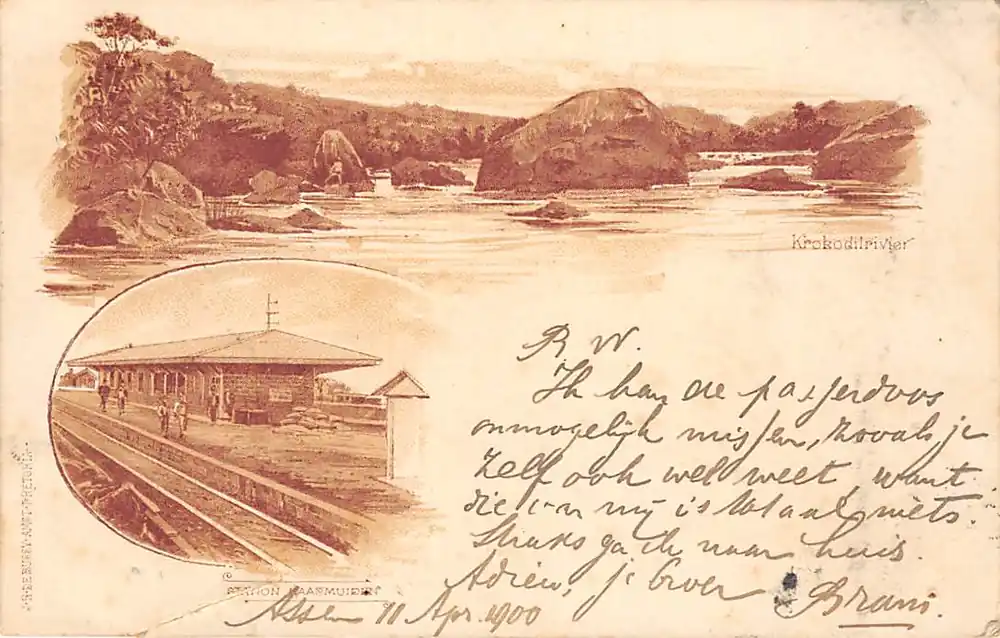 Krokodilrivier
R W.
Ik kan de passerdoos
onmogelijk missen, zooals je
zelf ook wel weet, want
die van mij is totaal niets.
Straks ga ik naar huis.
Adieu, je broer Bram.
STATION KAAPMUIDEN
Assen 11 Apr. 1900
J.H. DE BUSSY. AMST-PRETORIA.